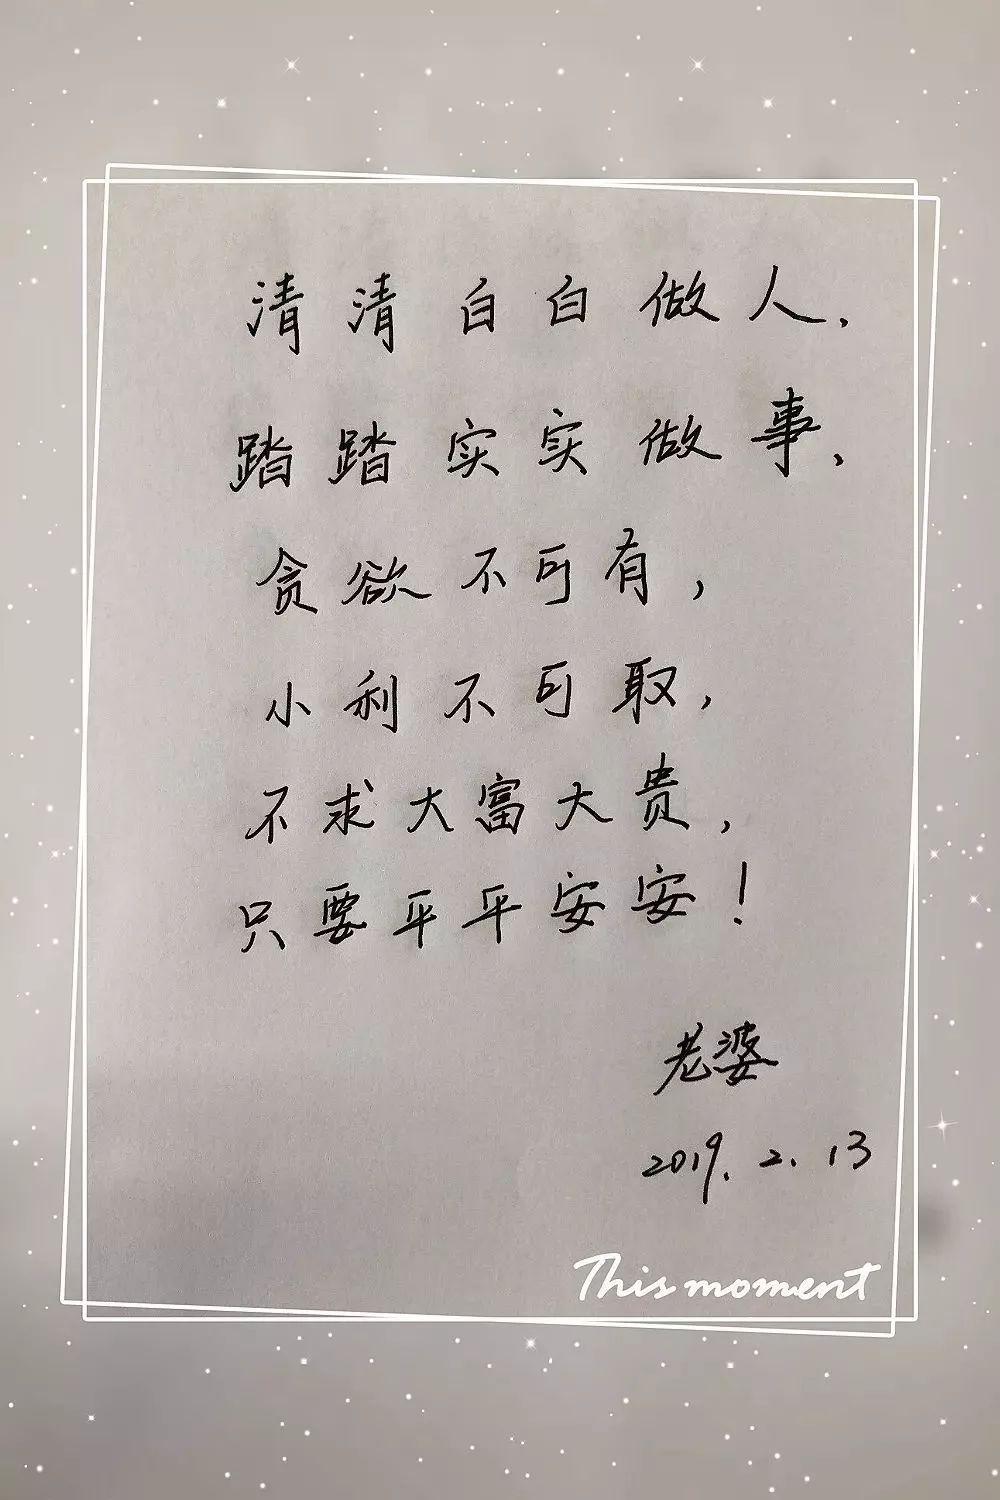 清清白白做人，
踏踏实实做事，
贪欲不可有，
小利不可取，
不求大富大贵，
只要平平安安！
老婆
2019.2.13
This moment